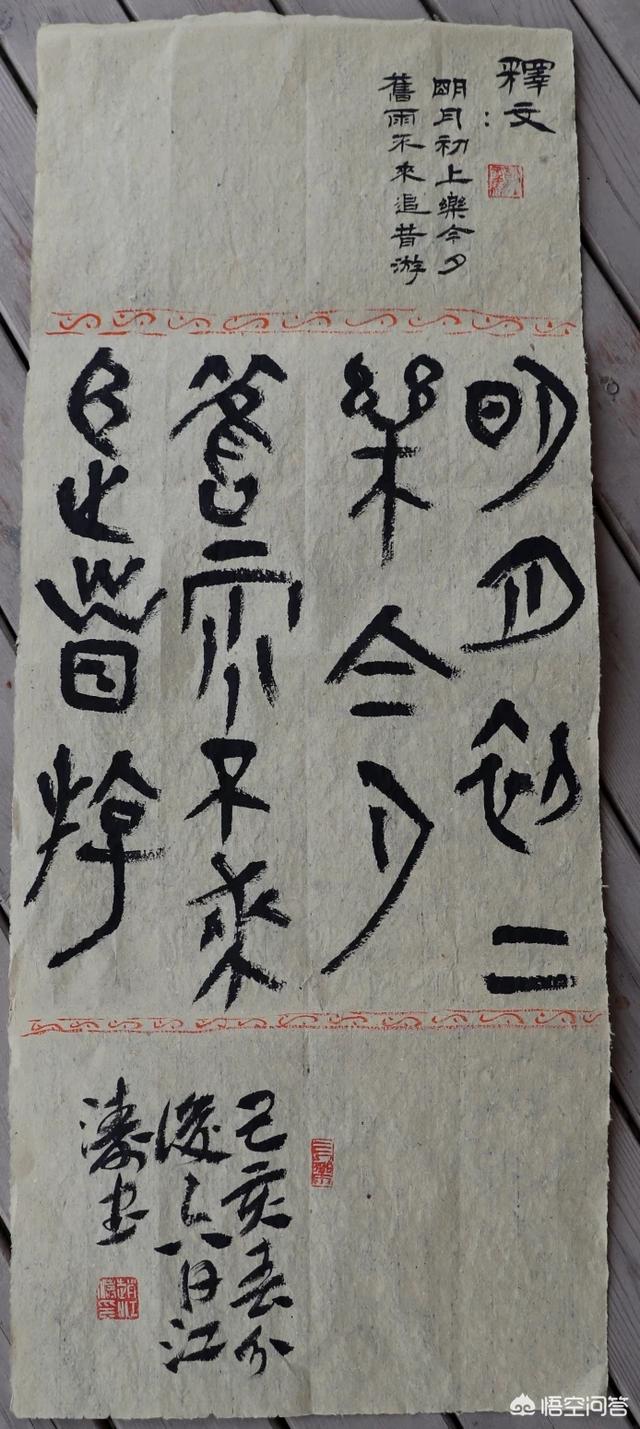 釋文：
明月初上樂今夕
舊雨不來追昔游
明月初二
樂今夕
舊雨不來
追昔游
己亥春分
後六日江
濤書
悟空问答